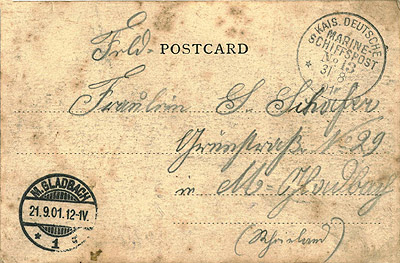 Feld- POSTCARD
KAIS. DEUTSCHE
MARINE-
SCHIFFSPOST
No 13
31 8
Fräulein S. Schäfer
Grünstraße No 29
in M-Gladbach
(Rheinland)
M. GLADBACH
21.9.01.12-1V.
* 1